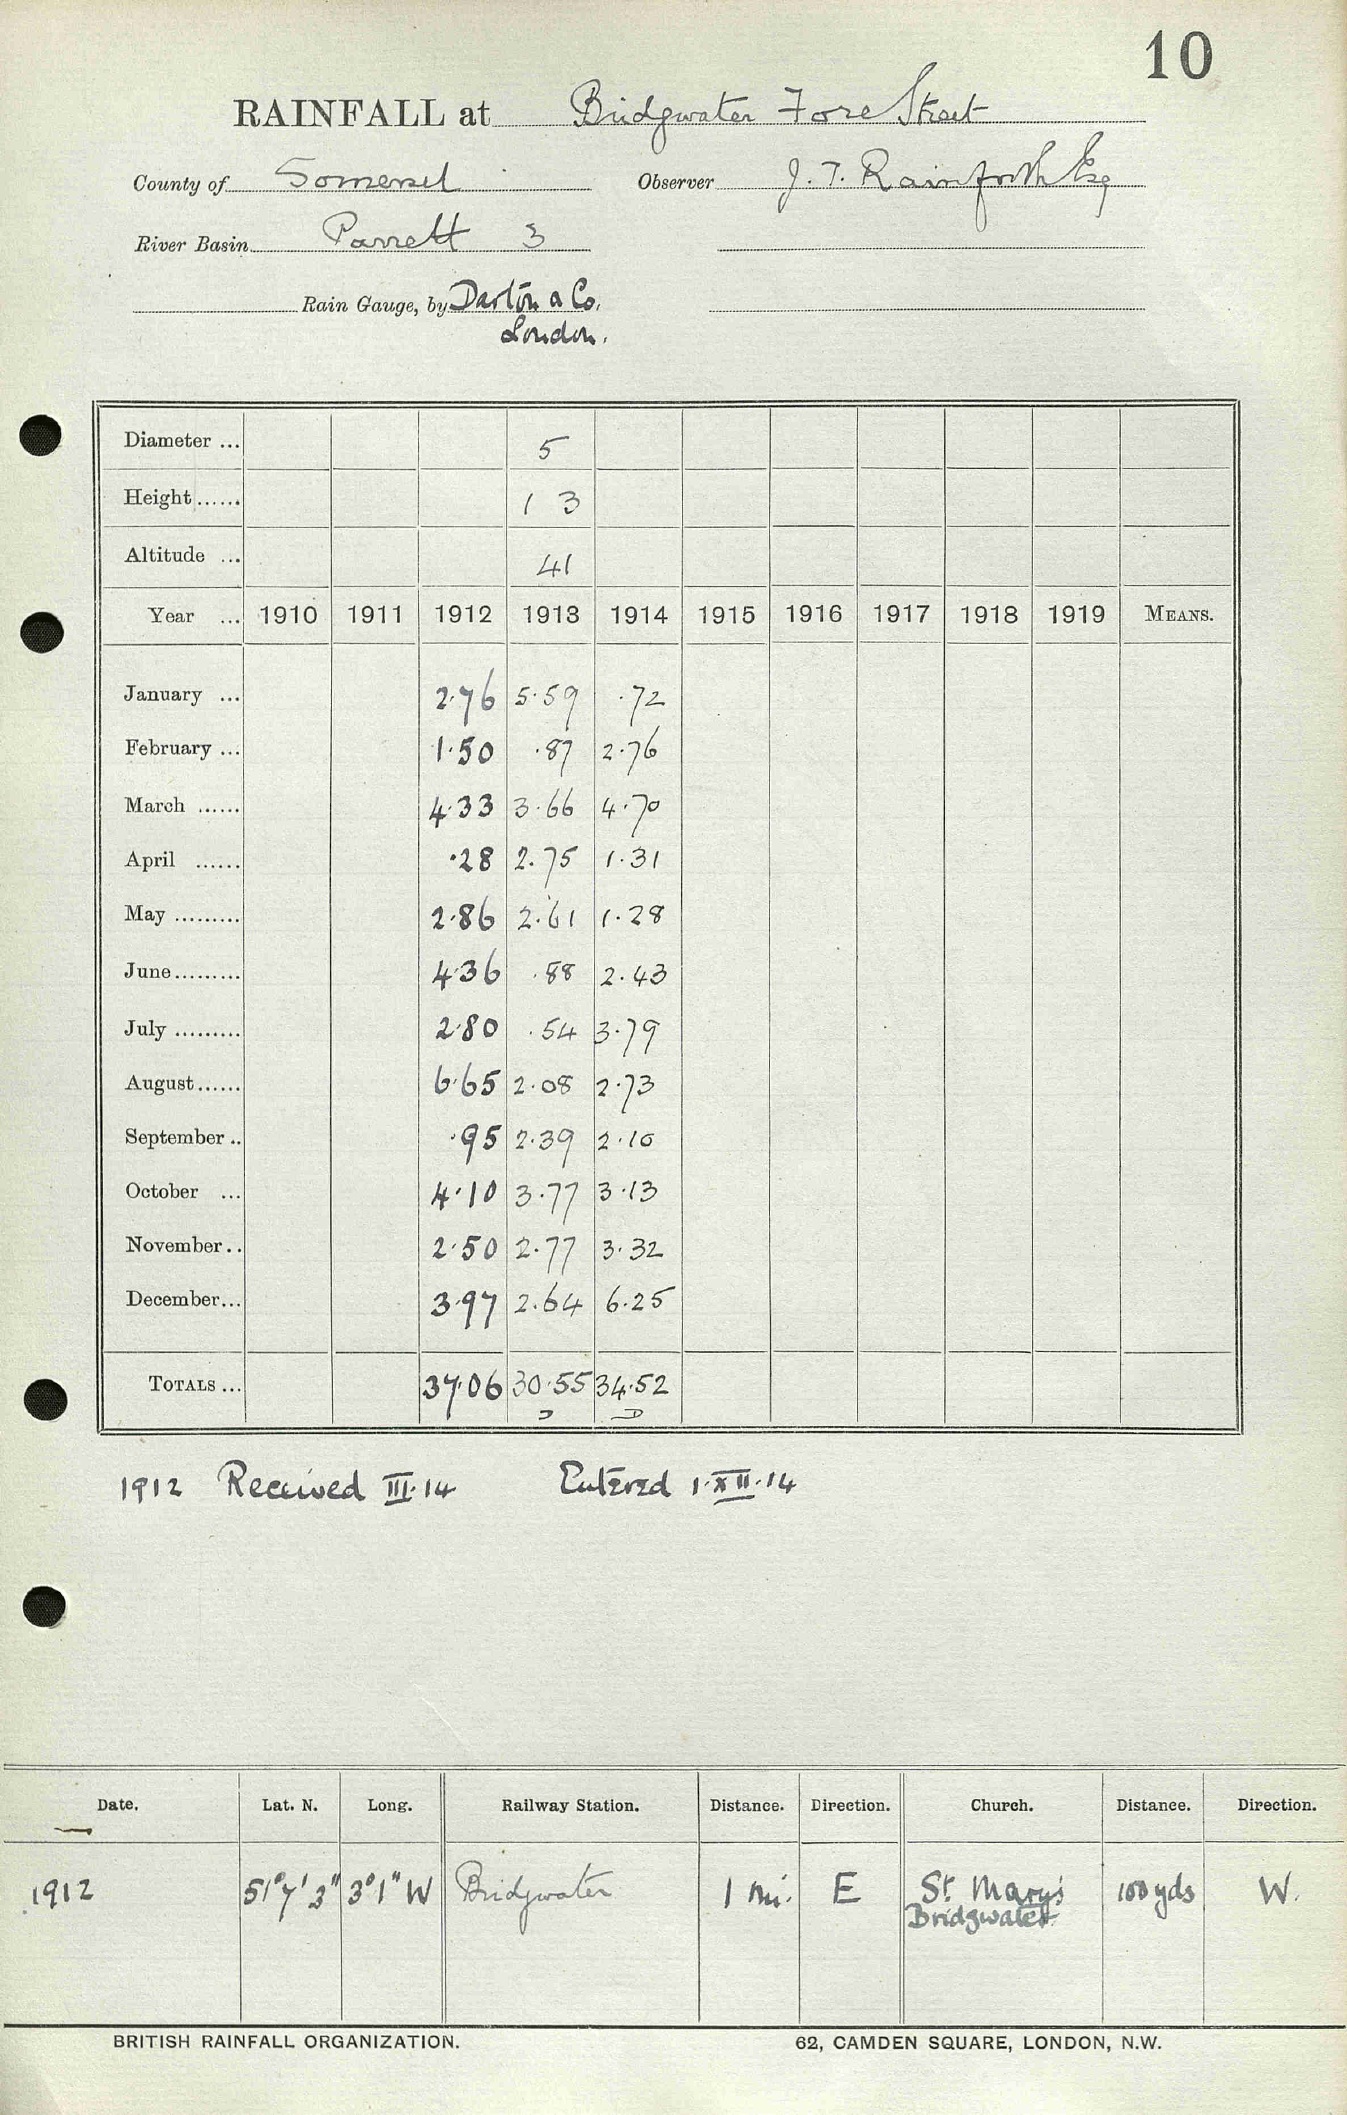 10
RAINFALL at Bridgwater Fore Street
County of Somerset Observer J. T. Rainforth Esq
River Basin Parrett 3
Rain Gauge, by Darton & Co.
London.
Diameter ... 5
Height...... 1 3
Altitude ... 41
Year ... 1910 1911 1912 1913 1914 1915 1916 1917 1918 1919 MEANS.
January ... 2.76 5.59 .72
February ... 1.50 .87 2.76
March ...... 4.33 3.66 4.70
April ...... .28 2.75 1.31
May ......... 2.86 2.61 1.28
June......... 4.36 .88 2.43
July ......... 2.80 .54 3.79
August...... 6.65 2.08 2.73
September .. .95 2.39 2.10
October ... 4.10 3.77 3.13
November.. 2.50 2.77 3.32
December... 3.97 2.64 6.25
TOTALS ... 37.06 30.55 34.52
1912 Received III.14 Entered 1.XII.14
Date. Lat. N. Long. Railway Station. Distance. Direction. Church. Distance. Direction.
1912 51°7'3" 3°1" W Bridgwater 1 mi. E St. Mary's 100 yds W.
Bridgwater
BRITISH RAINFALL ORGANIZATION. 62, CAMDEN SQUARE, LONDON, N.W.